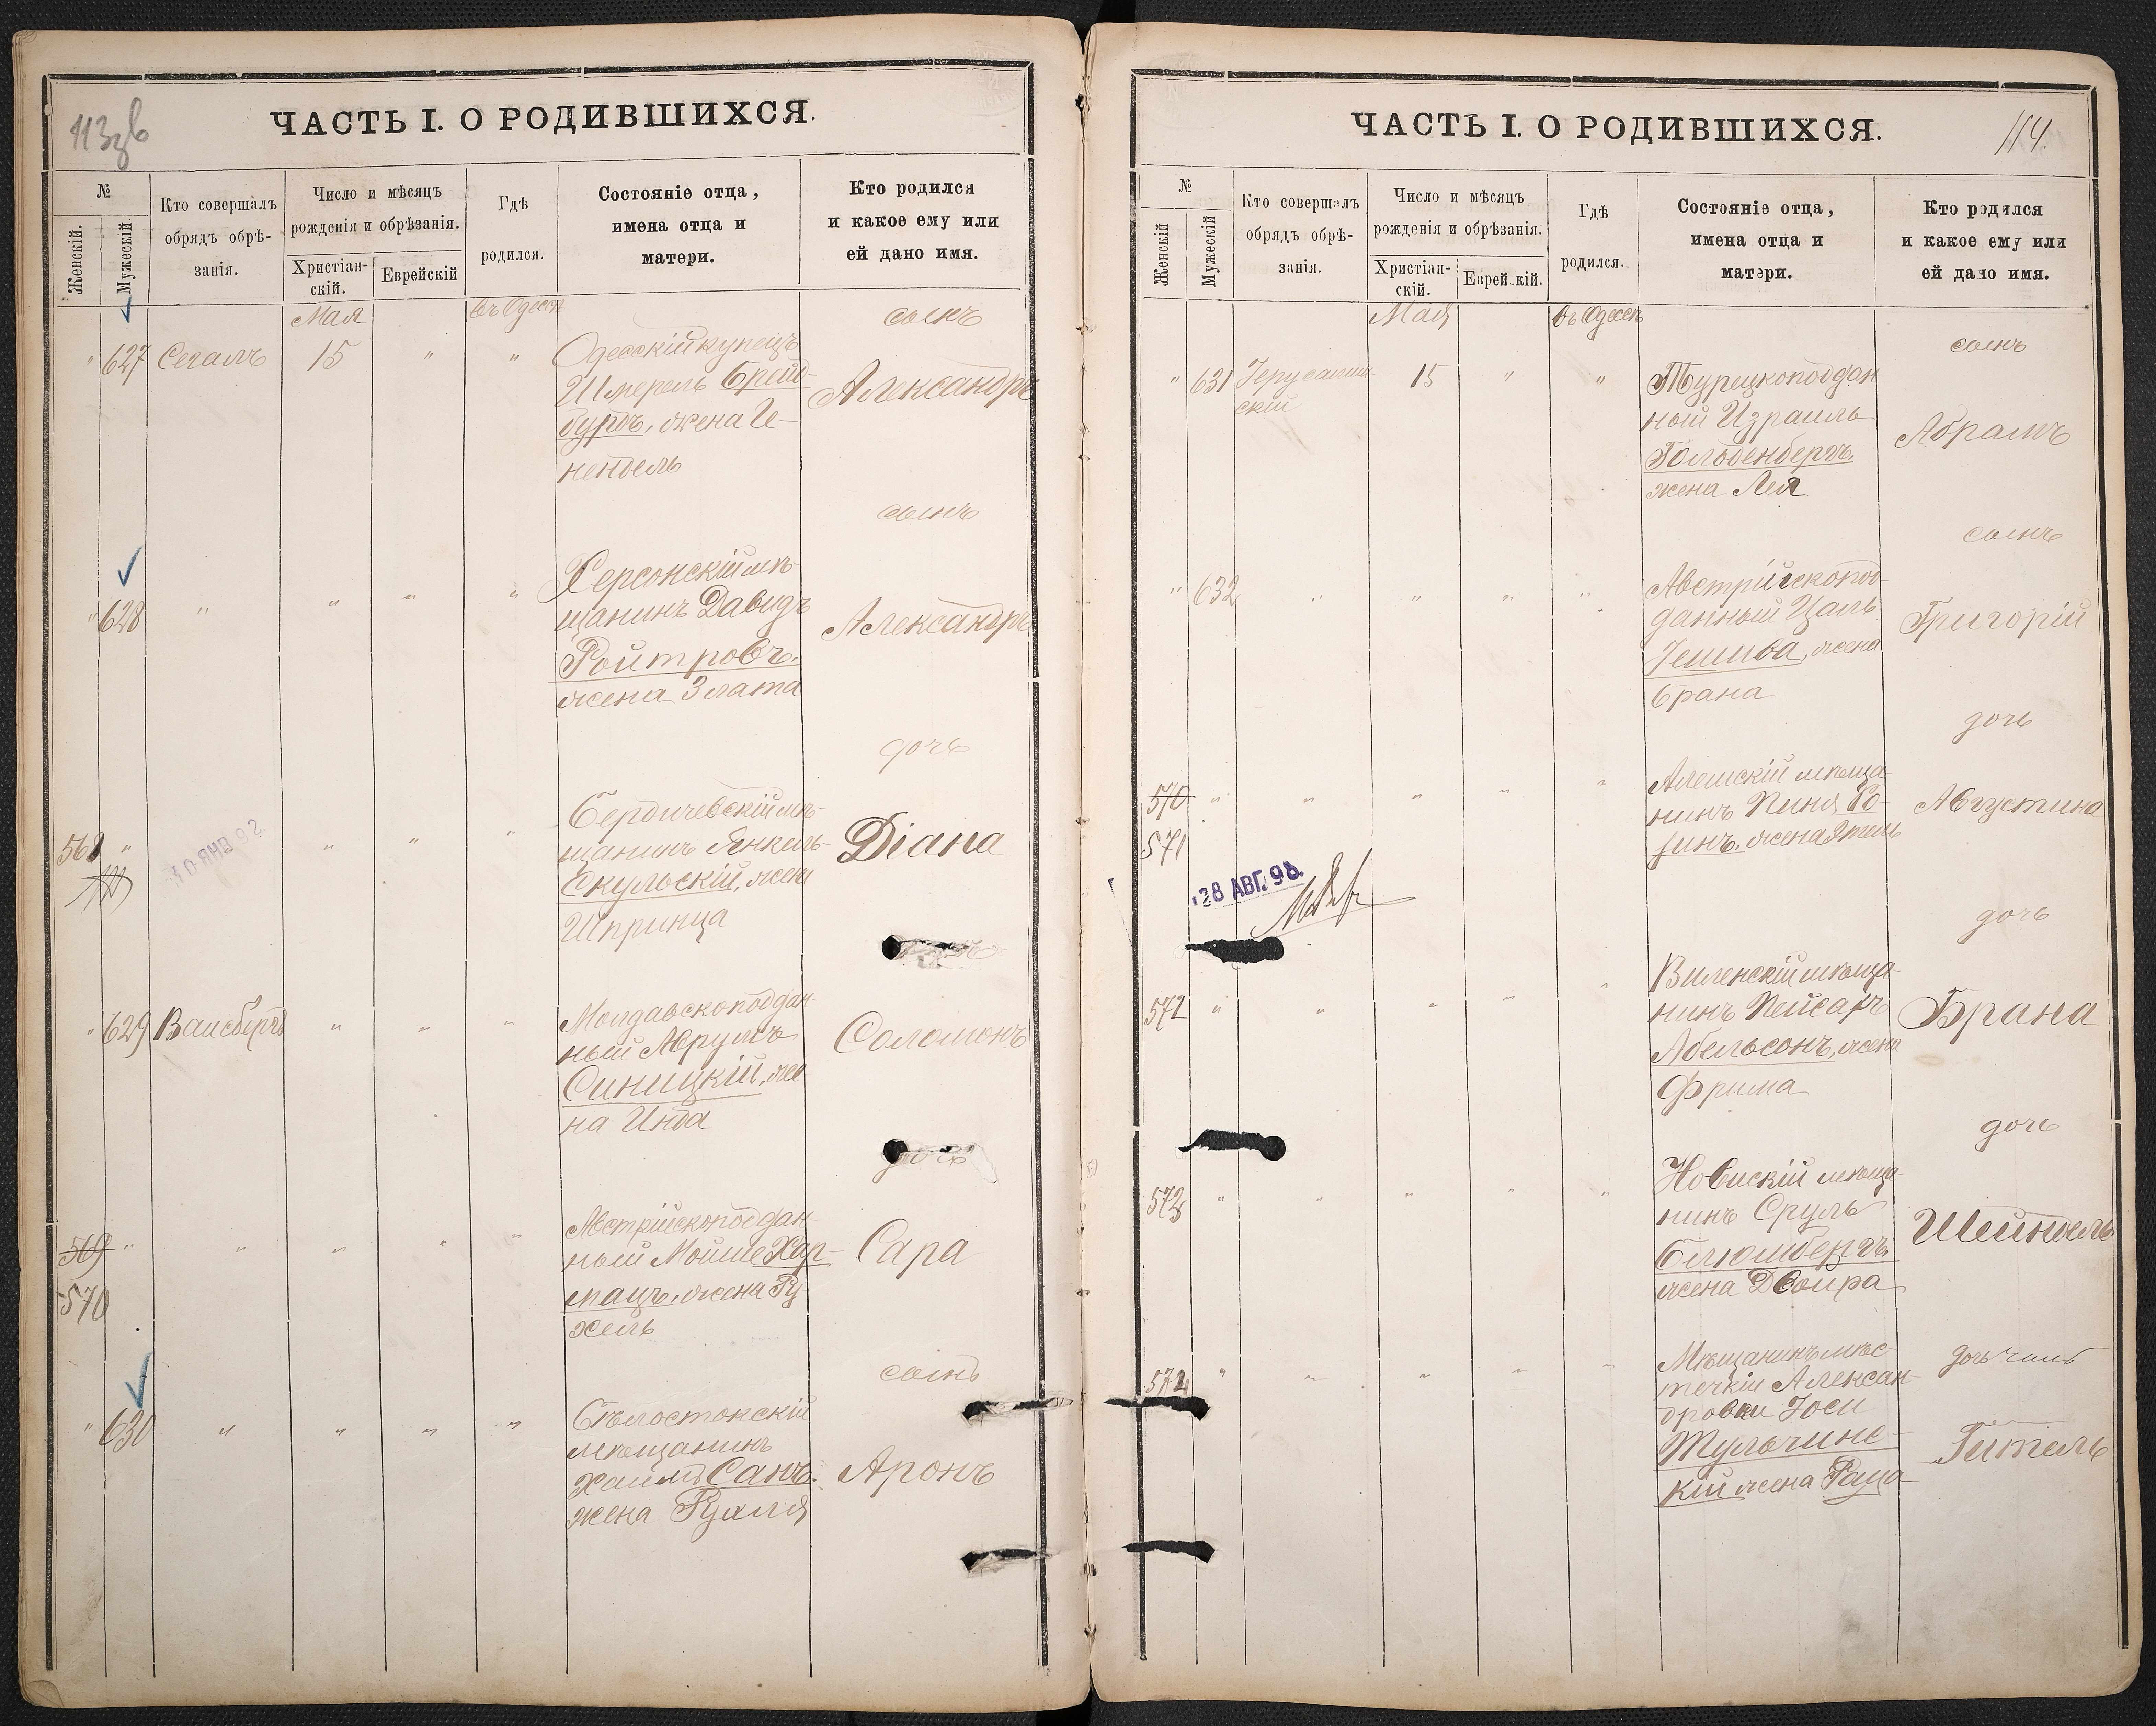 113 зв
ЧАСТЬ I. О РОДИВШИХСЯ.
№
Женскій.
Мужескій
Кто совершалъ
обрядъ обрѣ-
занія.
Число и мѣсяцъ
рожденія и обрѣзанія.
Христіан-
скій.
Еврейскій
Гдѣ
родился.
Состояніе отца,
имена отца и
матери.
Кто родился
и какое ему или
ей дано имя.
Мая
въ Одессѣ
сынъ
" 627 Сегалъ 15 " "
Одесскій купецъ
Шмерель Брай-
бурдъ, жена Ге-
нендель
Александръ
сынъ
" 628 " " " "
Херсонскій мѣ-
щанинъ Давидъ
Ройтровъ.
жена Злата
Александръ
дочь
568 "
10 ЯНВ 92
" " "
Бердичевскій мѣ-
щанинъ Янкель
Скульскій, жена
Шпринца
Діана
" 629 Вайсбергъ " " "
Молдавскоподдан-
ный Аврумъ
Синицкій, же
на Инда
Соломонъ
дочь
569 " " " " "
570
Австрійскоподдан-
ный Мойше Хар-
мацъ, жена Ру
хель
Сара
сынъ
" 630 " " " "
Бѣлостокскій
мѣщанинъ
Хаимъ Санъ.
жена Рухля
Аронъ
114.
ЧАСТЬ I. О РОДИВШИХСЯ.
№
Женскій
Мужескій
Кто совершалъ
обрядъ обрѣ-
занія.
Число и мѣсяцъ
рожденія и обрѣзанія.
Христіан-
скій.
Еврейскій.
Гдѣ
родился.
Состояніе отца,
имена отца и
матери.
Кто родился
и какое ему или
ей дано имя.
Мая
въ Одессѣ
сынъ
" 631 Іерусалим-
скій
15 " "
Турецкоподдан
ный Израиль
Гольденбергъ.
жена Лея
Абрамъ
сынъ
" 632 " " " "
Австрійскопод-
данный Цаль
Іешива, жена
Брана
Григорій
дочь
570 " " " " "
571
Алешскій мѣща-
нинъ Пиня Ро-
зинъ, жена
Августина
28 АВГ. 98.
дочь
572 " " " " "
Виленскій мѣща-
нинъ Пейсахъ
Абельсонъ, жена
Фрима
Брана
дочь
573 " " " " "
мѣща
нинъ Сруль
Блюмбергъ.
жена Двойра
Шейндель
574 " " " " "
Мѣщанинъ мѣс-
течкіи Алексан-
дровки Іоси
Тульчинс-
кій жена
дочь
Гитель